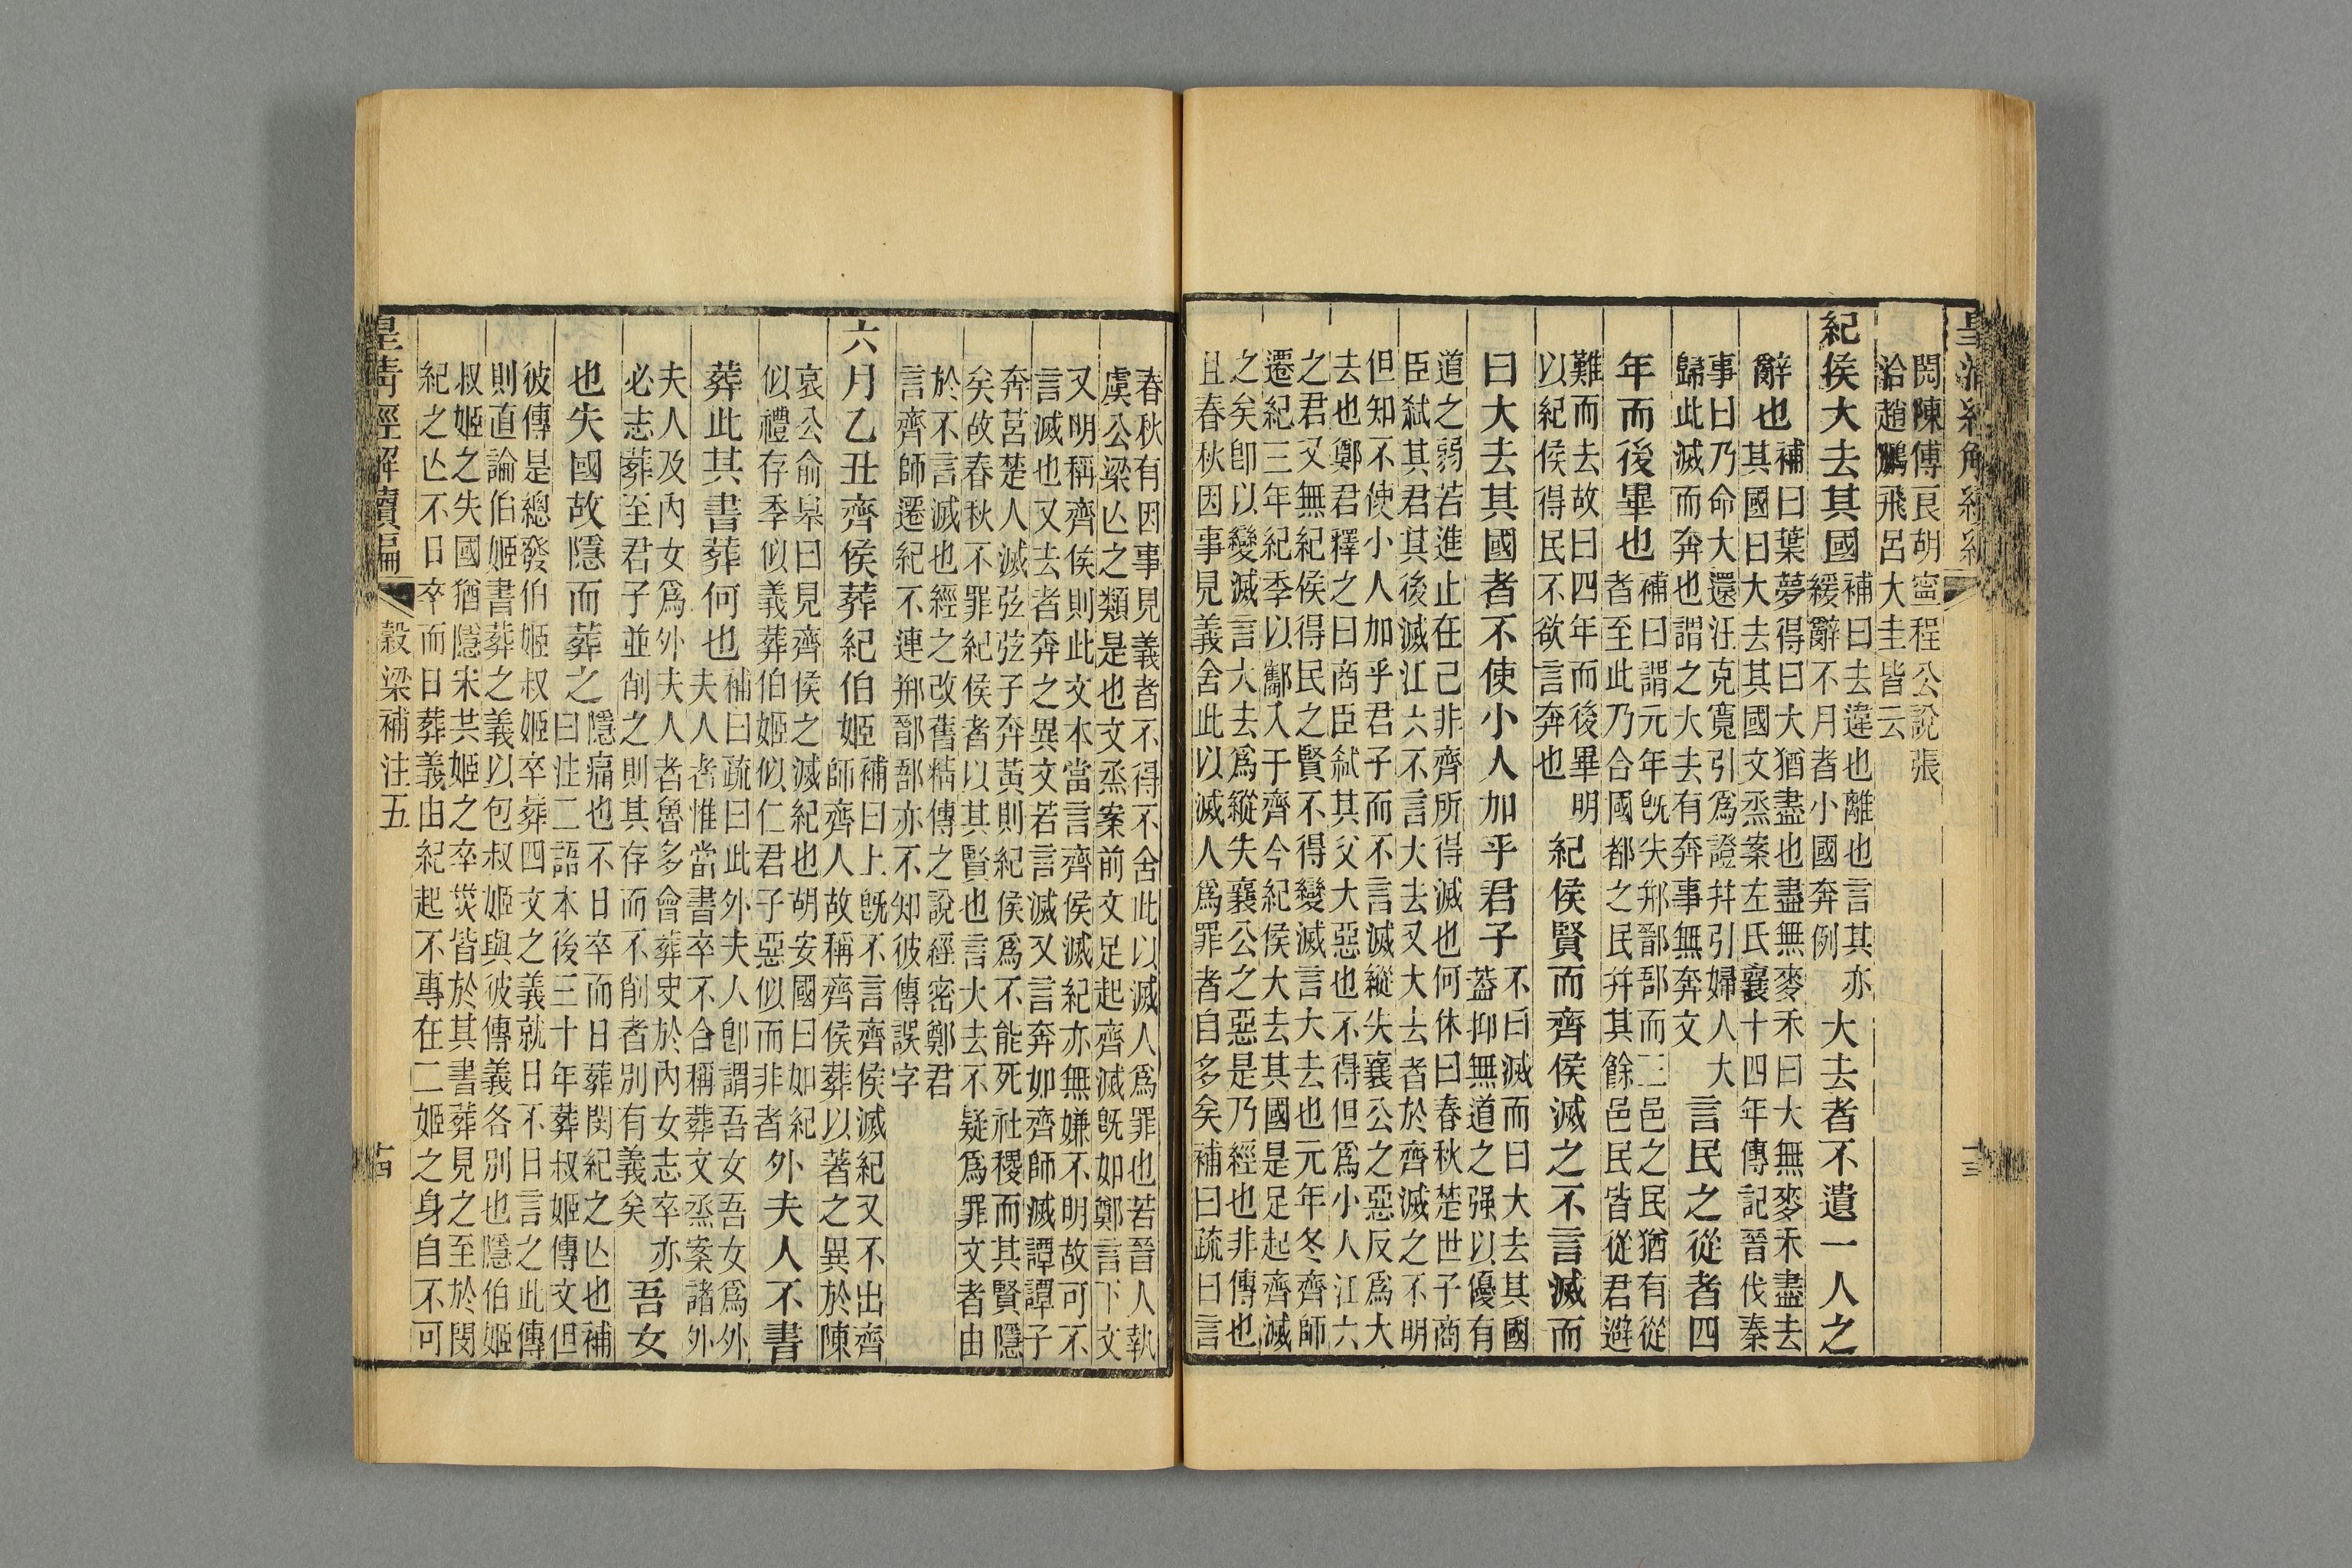 閎陳傅良胡寧程公說張
洽趙鵬飛呂大圭皆云
紀侯大去其國
補曰去違也離也言其亦
緩辭不月者小國奔例
大去者不遺一人之
辭也
補曰葉夢得曰大猶盡也盡無麥禾曰大無麥禾盡去
其國曰大去其國文烝案左氏襄十四年傳記晉伐秦
事曰乃命大還汪克寬引爲證幷引婦人大
歸此滅而奔也謂之大去有奔事無奔文
言民之從者四
年而後畢也
補曰謂元年旣失郱鄑郚而三邑之民猶有從
者至此乃合國都之民幷其餘邑民皆從君避
難而去故曰四年而後畢明
以紀侯得民不欲言奔也
紀侯賢而齊侯滅之不言滅而
曰大去其國者不使小人加乎君子
不曰滅而曰大去其國
蓋抑無道之强以優有
道之弱若進止在己非齊所得滅也何休曰春秋楚世子商
臣弒其君其後滅江六不言大去又大去者於齊滅之不明
但知不使小人加乎君子而不言滅縱失襄公之惡反爲大
去也鄭君釋之曰商臣弒其父大惡也不得但爲小人江六
之君又無紀侯得民之賢不得變滅言大去也元年冬齊師
遷紀三年紀季以酅入于齊今紀侯大去其國是足起齊滅
之矣卽以變滅言大去爲縱失襄公之惡是乃經也非傳也
且春秋因事見義舍此以滅人爲罪者自多矣補曰疏曰言
春秋有因事見義者不得不舍此以滅人爲罪也若晉人執
虞公梁亾之類是也文烝案前文足起齊滅旣如鄭言下文
又明稱齊侯則此文本當言齊侯滅紀亦無嫌不明故可不
言滅也又去者奔之異文若言滅又言奔如齊師滅譚譚子
奔莒楚人滅弦弦子奔黃則紀侯爲不能死社稷而其賢隱
矣故春秋不罪紀侯者以其賢也言大去不疑爲罪文者由
於不言滅也經之改舊精傳之說經密鄭君
言齊師遷紀不連郱鄑郚亦不知彼傳誤字
六月乙丑齊侯葬紀伯姬
補曰上旣不言齊侯滅紀又不出齊
師齊人故稱齊侯葬以著之異於陳
哀公俞皋曰見齊侯之滅紀也胡安國曰如紀
似禮存季似義葬伯姬似仁君子惡似而非者
外夫人不書
葬此其書葬何也
補曰疏曰此外夫人卽謂吾女吾女爲外
夫人者惟當書卒不合稱葬文烝案諸外
夫人及內女爲外夫人者魯多會葬史於內女志卒亦
必志葬至君子並削之則其存而不削者別有義矣
吾女
也失國故隱而葬之
隱痛也不日卒而日葬閔紀之亾也補
曰注二語本後三十年葬叔姬傳文但
彼傳是總發伯姬叔姬卒葬四文之義就日不日言之此傳
則直論伯姬書葬之義以包叔姬與彼傳義各別也隱伯姬
叔姬之失國猶隱宋共姬之卒災皆於其書葬見之至於閔
紀之亾不日卒而日葬義由紀起不專在二姬之身自不可
皇清經解續編
穀梁補注五